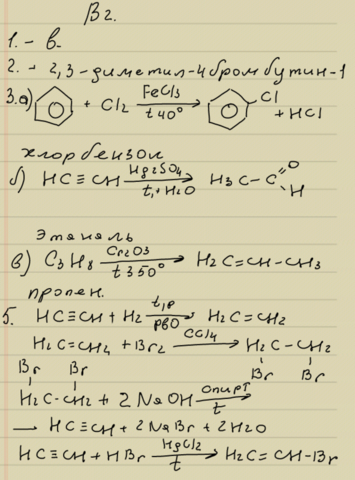 В2.
1. - в.
2. - 2,3-диметил-4бромбутин-1
3.а) + Cl2 FeCl3 t 40° Cl + HCl
хлорбензол
б) HC≡CH Hg2SO4 t,+H2O H3C-C O H
этаналь
в) C3H8 Cr2O3 t 350° H2C=CH-CH3
пропен.
5. HC≡CH + H2 t,p PBO H2C=CH2
H2C=CH2 + Br2 CCl4 H2C-CH2
Br Br Br Br
H2C-CH2 + 2NaOH спирт t
→ HC≡CH + 2NaBr + 2H2O
HC≡CH + HBr HgCl2 t H2C=CH-Br